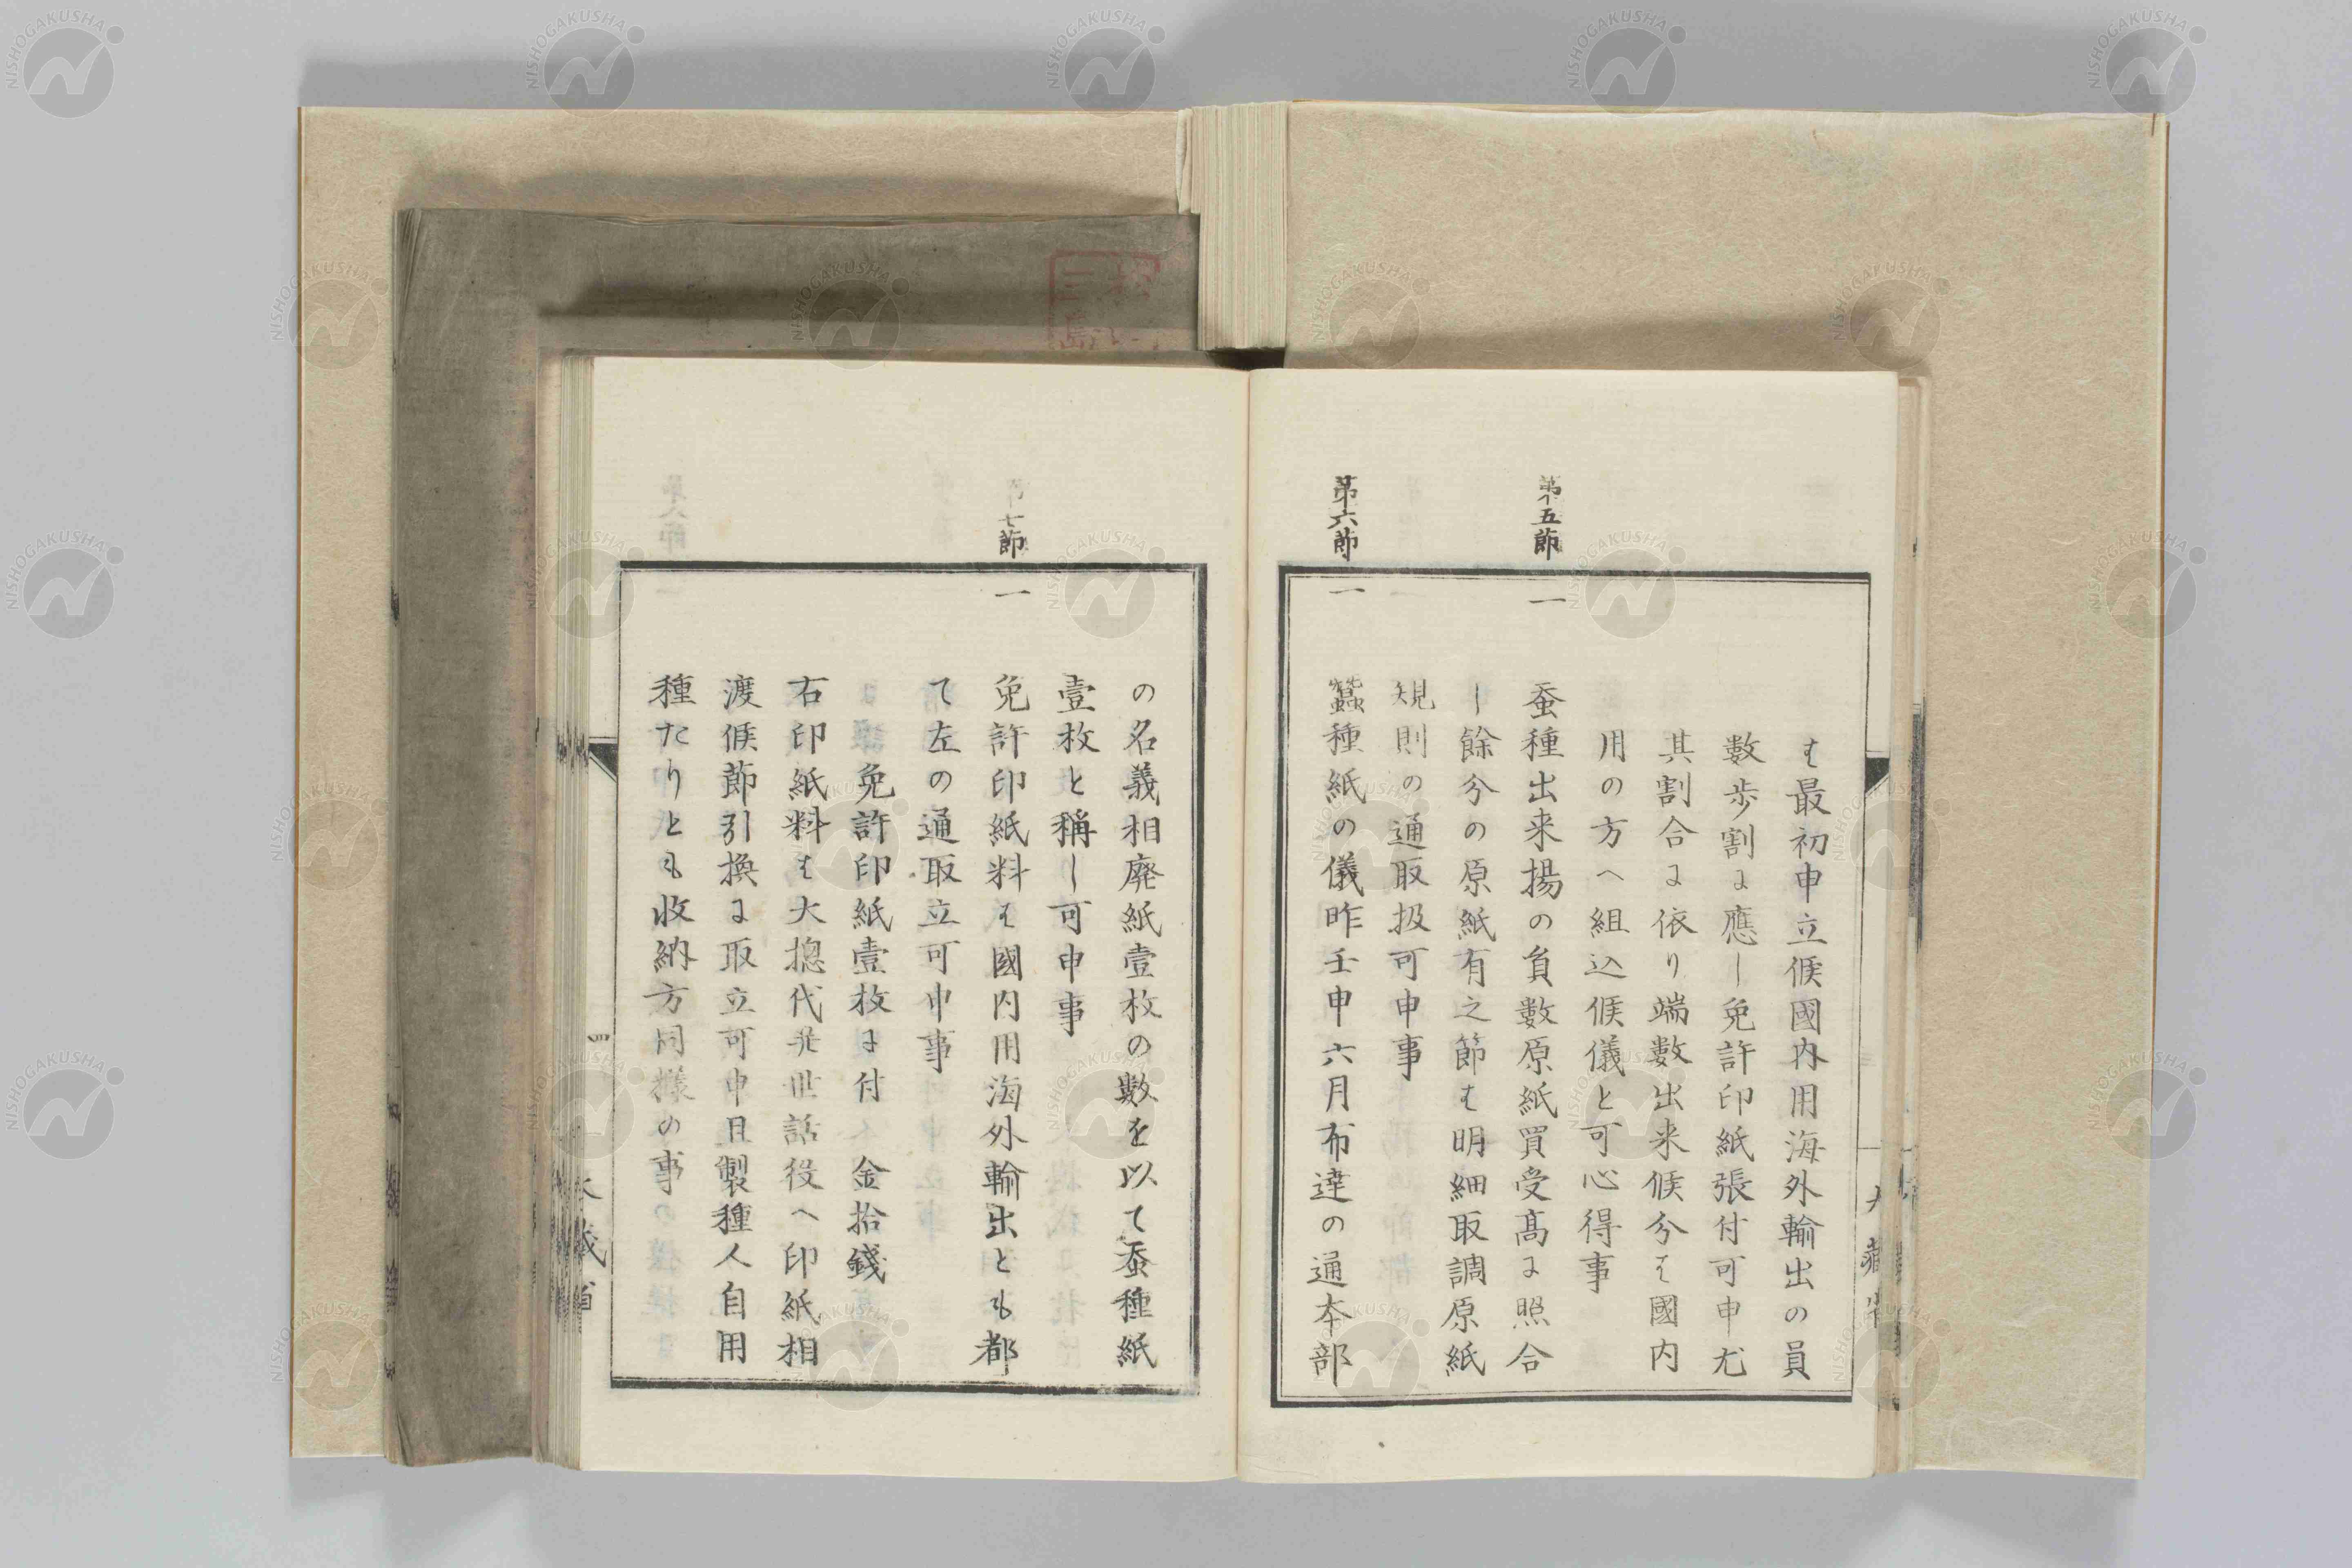 は最初申立候國内用海外輸出の員
數歩割に應し免許印紙張付可申尤
其割合に依り端數出来候分は國内
用の方へ組込候儀と可心得事
第五節
一 蚕種出来揚の負數原紙買受髙に照合
し餘分の原紙有之節は明細取調原紙
規則の通取扱可申事
第六節
一 蠶種紙の儀昨壬申六月布達の通本部
の名義相廃紙壹枚の數を以て蚕種紙
壹枚と稱し可申事
七節
一 免許印紙料は國内用海外輸出とも都
て左の通取立可申事
免許印紙壹枚に付 金拾錢
右印紙料は大揔代并世話役へ印紙相
渡候節引換に取立可申且製種人自用
種たりとも收納方同樣の事
四
大藏省
NISHOGAKUSHA